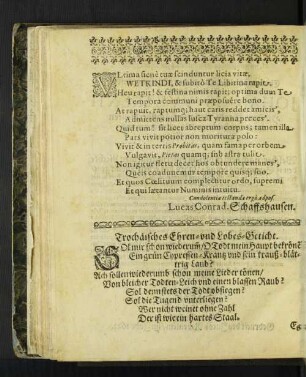 VLtima sicnè tuæ scinduntur licia vitæ,
WETKINDI, & subitò Te Libitina rapit,
Heu rapit! & festina nimis rapit; optima duin Te
Tempora communi præposuere bono.
At rapuit, raptumq; haut caris reddet amicis,
Admittens nullus jusca Tyranna preces!
Quid tum? sit licet abreptum corpus; tamen illa
Pars vivit potior non moritura polo:
Vivit & in terris Probitas, quam fama per orbem
Vulgavit, Pietas quamq; sub astra tulit.
Non igitur fletu decet hos obtundere manes,
Queis
Et quos Cœlituum complectitur ordo, supremi
Et qui lætantur Numinis intuitu.
Condolentiæ testandæ ergò adpos.
Lucas Conrad. Schaffshausen.
Trochäisches Ehren- und Lobes-Geticht.
SOl mir schon wiederum / O Todt mein Haupt bekrönē
Ein grün Cypressen-Krantz und sein trauß-blät-
trig Laub?
Ach sollen wiederumb schon meine Lieder tönen /
Von bleicher Todten-Leich und einen blassen Raub?
Sol denn stets der Todt obsiegen?
Sol die Tugend unterliegen?
Wer nicht weinet ohne Zahl
Der ist wie ein hartes Staal.